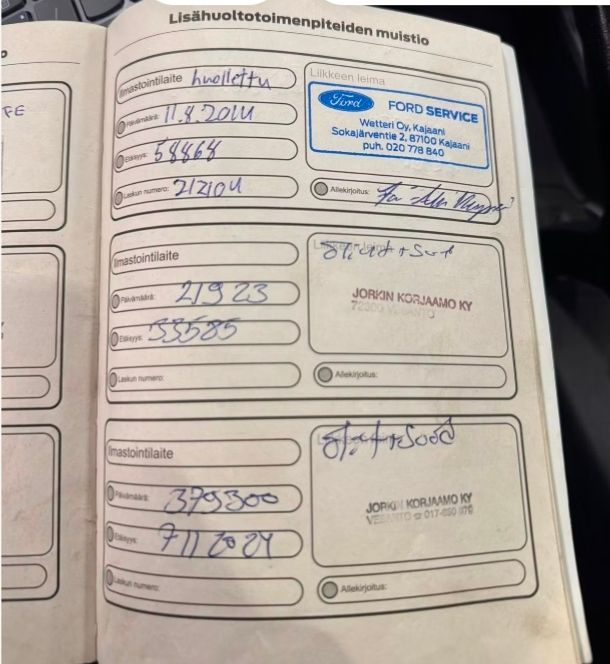 Lisähuoltotoimenpiteiden muistio
FE
Ilmastointilaite huollettu
Päivämäärä: 11.8.2014
Etäisyys: 58868
Laskun numero: 212104
Liikkeen leima
Ford FORD SERVICE
Wetteri Oy, Kajaani
Sokajärventie 2, 87100 Kajaani
puh. 020 778 840
Allekirjoitus:
Ilmastointilaite
Päivämäärä: 21923
Etäisyys: 33585
Laskun numero:
Liikkeen leima
JORKIN KORJAAMO KY
72300 VESANTO
Allekirjoitus:
Ilmastointilaite
Päivämäärä: 379300
Etäisyys: 7112024
Laskun numero:
JORKIN KORJAAMO KY
VESANTO
Allekirjoitus: